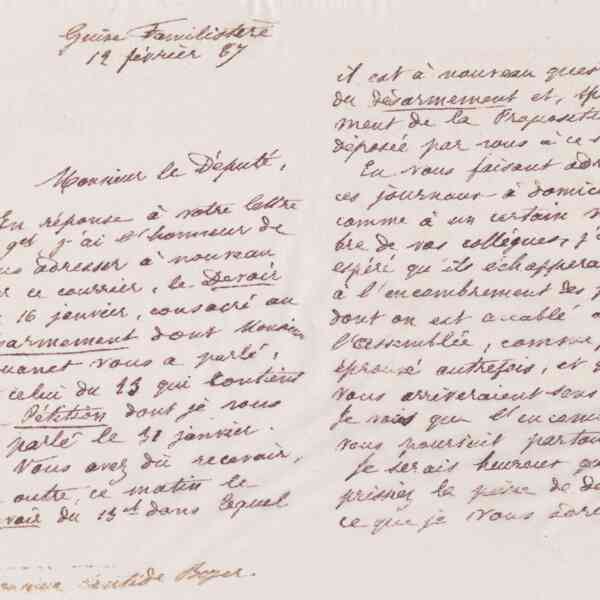 Guise Familistère
12 février 87
Monsieur le Député,
En réponse à votre lettre
j'ai l'honneur de
vous adresser à nouveau
ce courrier, le Devoir
16 janvier, consacré au
désarmement dont Monsieur
vous a parlé,
celui du 23 qui contient
Pétition dont je vous
parlé le 31 janvier.
Vous avez dû recevoir,
outre, ce matin le
Devoir du 13 ct dans lequel
Boyer.
il est à nouveau ques
du désarmement et, sp
ment de la Propositi
déposée par vous à ce s
En vous faisant adr
ces journaux à domic
comme à un certain
bre de vos collègues, j'
espéré qu'ils échappera
à l'encombrement des
dont on est accablé
l'Assemblée, comme
éprouvé autrefois, et
vous arriveraient sans
Je vois que l'encom
vous poursuit partou
Je serais heureux que
prissiez la peine de
ce que je vous adre